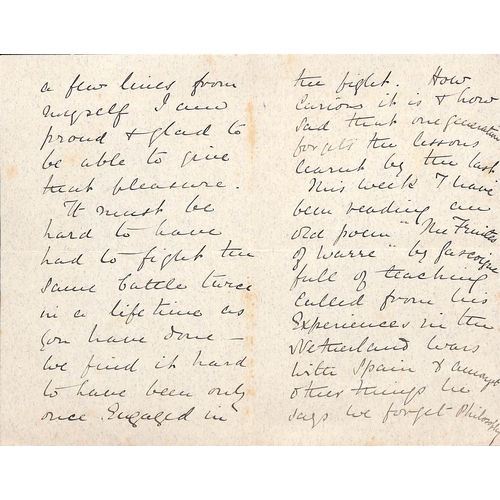 a few lines from
myself I am
proud & glad to
be able to give
that pleasure.
It must be
hard to have
had to fight the
same battle twice
in a lifetime as
you have done –
we find it hard
to have been only
once engaged in
the fight. How
curious it is & how
sad that one generation
forgets the lessons
learnt by the last.
This week I have
been reading an
old poem "The Fruites
of Warre" by Gascoigne
full of teaching
culled from his
Experiences in the
Netherland Wars
with Spain & amongst
other things he
says we forget Philosophy